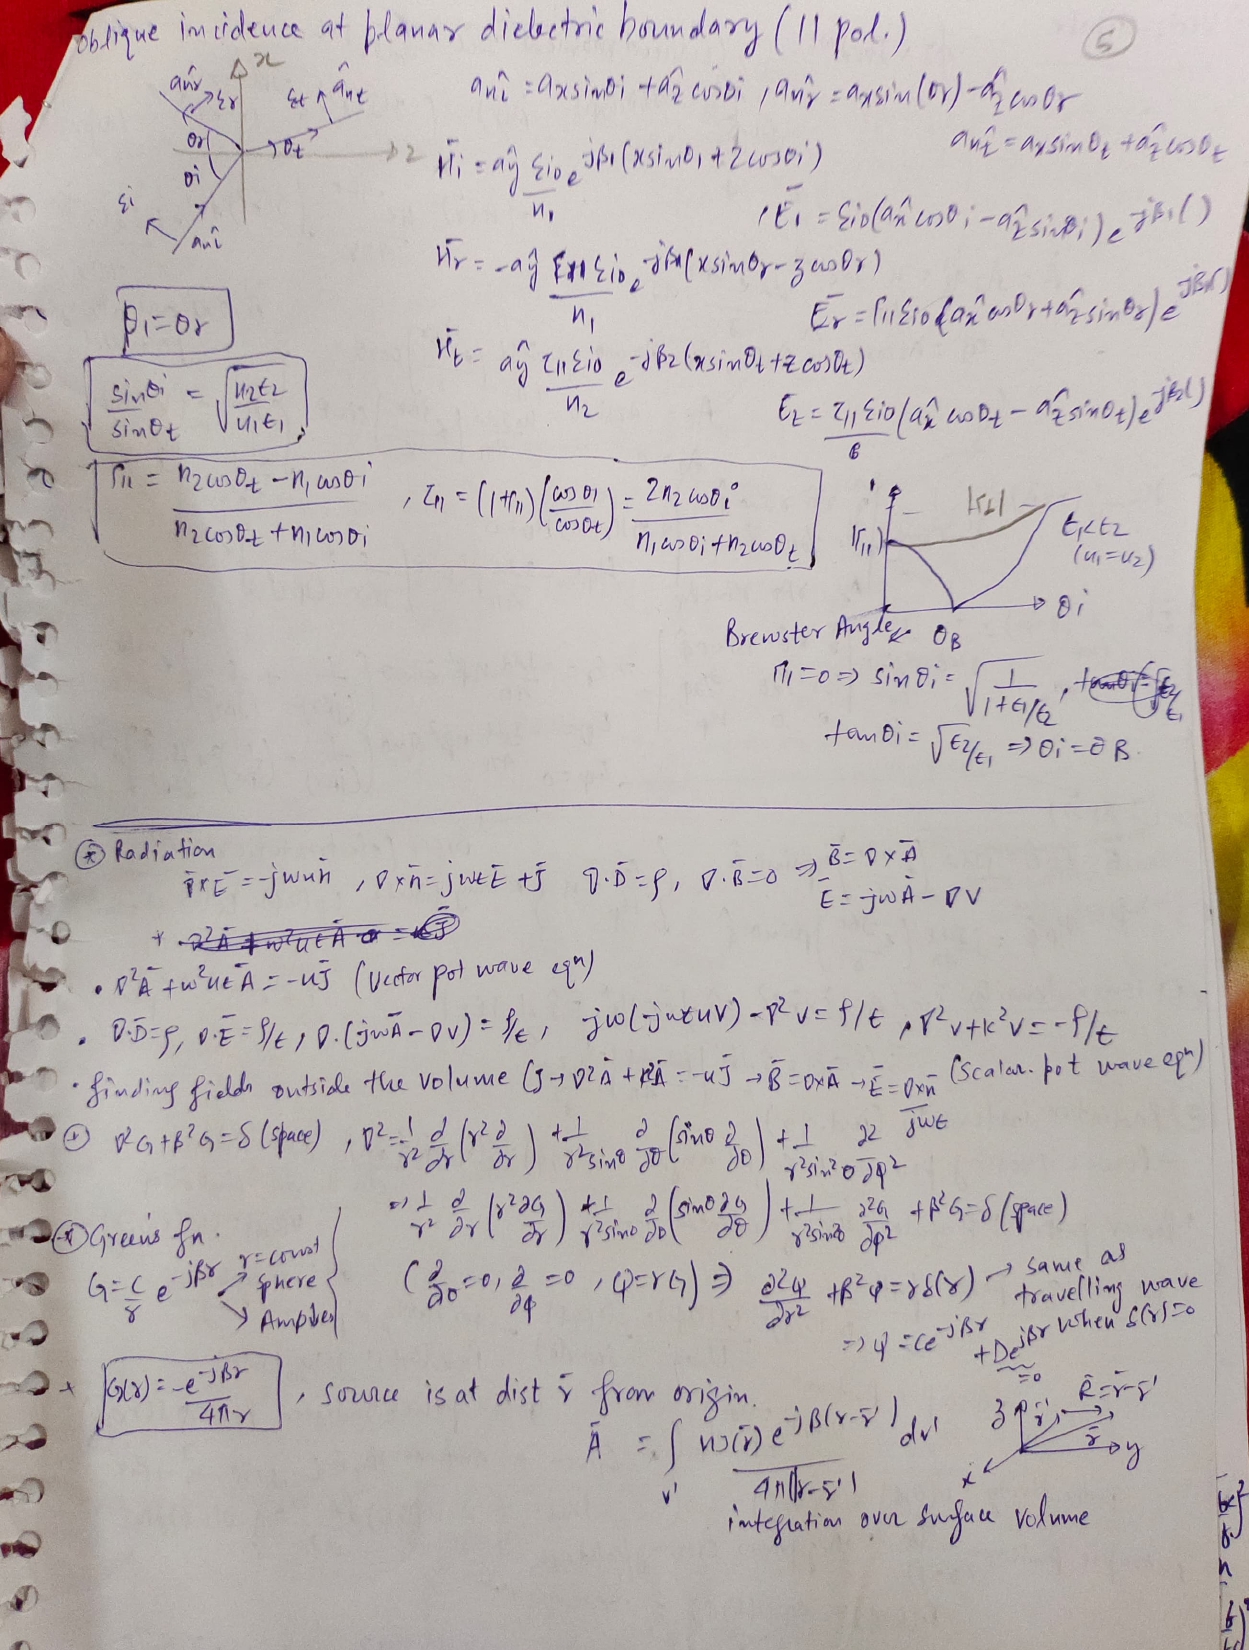 Oblique incidence at planar dielectric boundary (11 pol.)
5
x
z
ân̂r
εr
εt
ânt
θr
θt
θi
εi
ânî
ânî = axsinθi + âz cosθi , ânr̂ = axsin(θr) - âz cosθr
ânt̂ = axsinθt + âz cosθt
H̄i = aŷ εio/η1 e^-jβ1(xsinθ1 + zcosθi)
, Ē1 = εio(âx cosθi - âz sinθi) e^-jβ1()
H̄r = -aŷ Γ11 εio/η1 e^-jβ1(xsinθr - zcosθr)
Ēr = Γ11 εio (âx cosθr + âz sinθr) e^-jβ1()
H̄t = aŷ τ11 εio/η2 e^-jβ2(xsinθt + zcosθt)
Ēt = τ11 εio (âx cosθt - âz sinθt) e^-jβ2()
θi = θr
sinθi/sinθt = √(μ2ε2/μ1ε1)
Γ11 = (η2cosθt - η1cosθi)/(η2cosθt + η1cosθi) , τ11 = (1+Γ11)(cosθi/cosθt) = 2η2cosθi/(η1cosθi + η2cosθt)
|Γ11|
|Γ⊥|
ε1<ε2
(μ1=μ2)
θi
Brewster Angle θB
Γ11=0 ⇒ sinθi = √(1/(1+ε1/ε2)) ,
tanθi = √(ε2/ε1) ⇒ θi = θB.
⊛ Radiation
∇̄×Ē = -jωμH̄ , ∇×H̄ = jωεĒ + J̄ ∇.D̄=ρ, ∇.B̄=0 ⇒ B̄ = ∇×Ā
Ē = -jωĀ - ∇V
• ∇²Ā + ω²μεĀ = -μJ̄ (Vector pot wave eqn)
• ∇.D̄=ρ, ∇.Ē=ρ/ε, ∇.(-jωĀ - ∇V) = ρ/ε, -jω(-jωεμV) - ∇²V = ρ/ε , ∇²V + k²V = -ρ/ε
(Scalar. pot wave eqn)
• finding fields outside the volume (J → ∇²Ā + k²Ā = -μJ̄ → B̄ = ∇×Ā → Ē = ∇×H̄/jωε
⊛ ∇²G + β²G = δ(space) , ∇² = 1/r² ∂/∂r (r² ∂/∂r) + 1/r²sinθ ∂/∂θ (sinθ ∂/∂θ) + 1/r²sin²θ ∂²/∂φ²
⇒ 1/r² ∂/∂r (r² ∂G/∂r) + 1/r²sinθ ∂/∂θ (sinθ ∂G/∂θ) + 1/r²sin²θ ∂²G/∂φ² + β²G = δ(space)
⊛ Green's fn.
G = C/r e^-jβr
r=const
sphere
(∂/∂θ=0, ∂/∂φ=0, ψ=rG) ⇒ ∂²ψ/∂r² + β²ψ = rδ(r) → same as
travelling wave
when δ(r)=0
⇒ ψ = Ce^-jβr + De^jβr
=0
G(r) = -e^-jβr/4πr , source is at dist r̄ from origin.
z
r̄'
R̄ = r̄-r̄'
r̄
y
x
Ā = ∫v' μJ(r̄) e^-jβ(r-r̄')/4π|r-r̄'| dv'
integration over surface volume